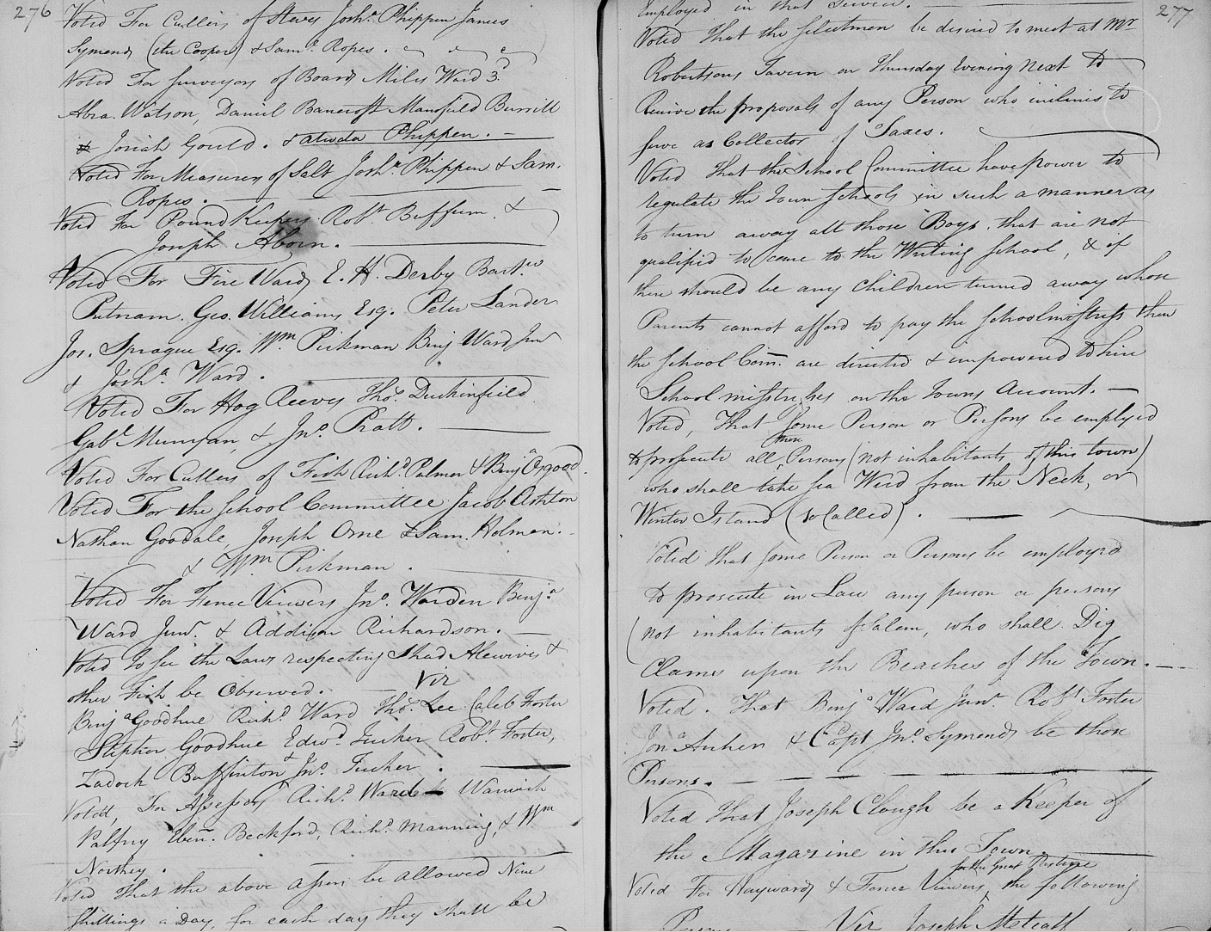 276
Voted For Cullers of Staves Joshª Phippen James
Symonds (the Cooper) & Samˡ Ropes.
Voted For Surveyors of Boards Miles Ward 3ᵈ
Abra. Watson, Daniel Bancroft Mansfield Burrill
& Josiah Gould. & Phippen.
Voted For Measurers of Salt Joshª Phippen & Sam.
Ropes.
Voted For Pound Keepers Robᵗ Buffum. &
Joseph Aborn.
Voted For Fire Wards E. H. Derby Bartʷ
Putnam. Geo. Williams Esq. Peter Lander
Jos. Sprague Esq. Wᵐ Pickman Benj Ward Junʳ
& Joshª Ward.
Voted For Hog Reeves Thoˢ Duckinfield
Gabˡ Munyan, & Jnº Pratt.
Voted For Cullers of Fish Richᵈ Palmer & Benjª Osgood.
Voted For the School Committee Jacob Ashton
Nathan Goodale, Joseph Orne & Sam. Holman.
& Wᵐ Pickman.
Voted For Fence Viewers Jnº. Warden Benjª
Ward Junʳ. & Addison Richardson.
Voted To see the Laws respecting Shad Alewives &
other Fish be Observed. Viz
Benjª Goodhue Richᵈ Ward Thoˢ Lee Caleb Foster
Stephen Goodhue Edwᵈ Tucker Robᵗ Foster,
Zadock Buffinton & Jnº Tucker.
Voted, For Assessors Richᵈ Ward Warwick
Palfray Ebenʳ. Beckford, Richᵈ Manning & Wᵐ
Northey.
Voted That the above assess be allowed Nine
Shillings a Day, for each day they shall be
277
employed in that Service.
Voted That the Selectmen be desired to meet at Mʳ
Robertsons Tavern on Thursday Evening next to
Receive the proposals of any Person who inclines to
serve as Collector of Taxes.
Voted That the School Committee have power to
regulate the Town Schools in such a manner as
to turn away all those Boys that are not
qualified to come to the Writing School, & if
there should be any Children turned away whose
Parents cannot afford to pay the Schoolmistress then
the School Com. are directed & impowered to hire
School mistresses on the Towns Account.
Voted, That Some Person or Persons be employed
to prosecute all those Persons (not inhabitants of this town)
who shall take Sea Weed from the Neck, or
Winter Island (so Called).
Voted that some Person or Persons be employed
to prosecute in Law any person or persons
(not inhabitants of Salem, who shall Dig
Clams upon the Beaches of the Town.
Voted. That Benjª Ward Junʳ. Robᵗ Foster
Jonª Archer & Capt Jnº Symonds be those
Persons.
Voted That Joseph Clough be a Keeper of
the Magazine in this Town.
Voted For Haywards & Fence Viewers for the Great Pasture the following
Persons Viz Joseph Metcalf